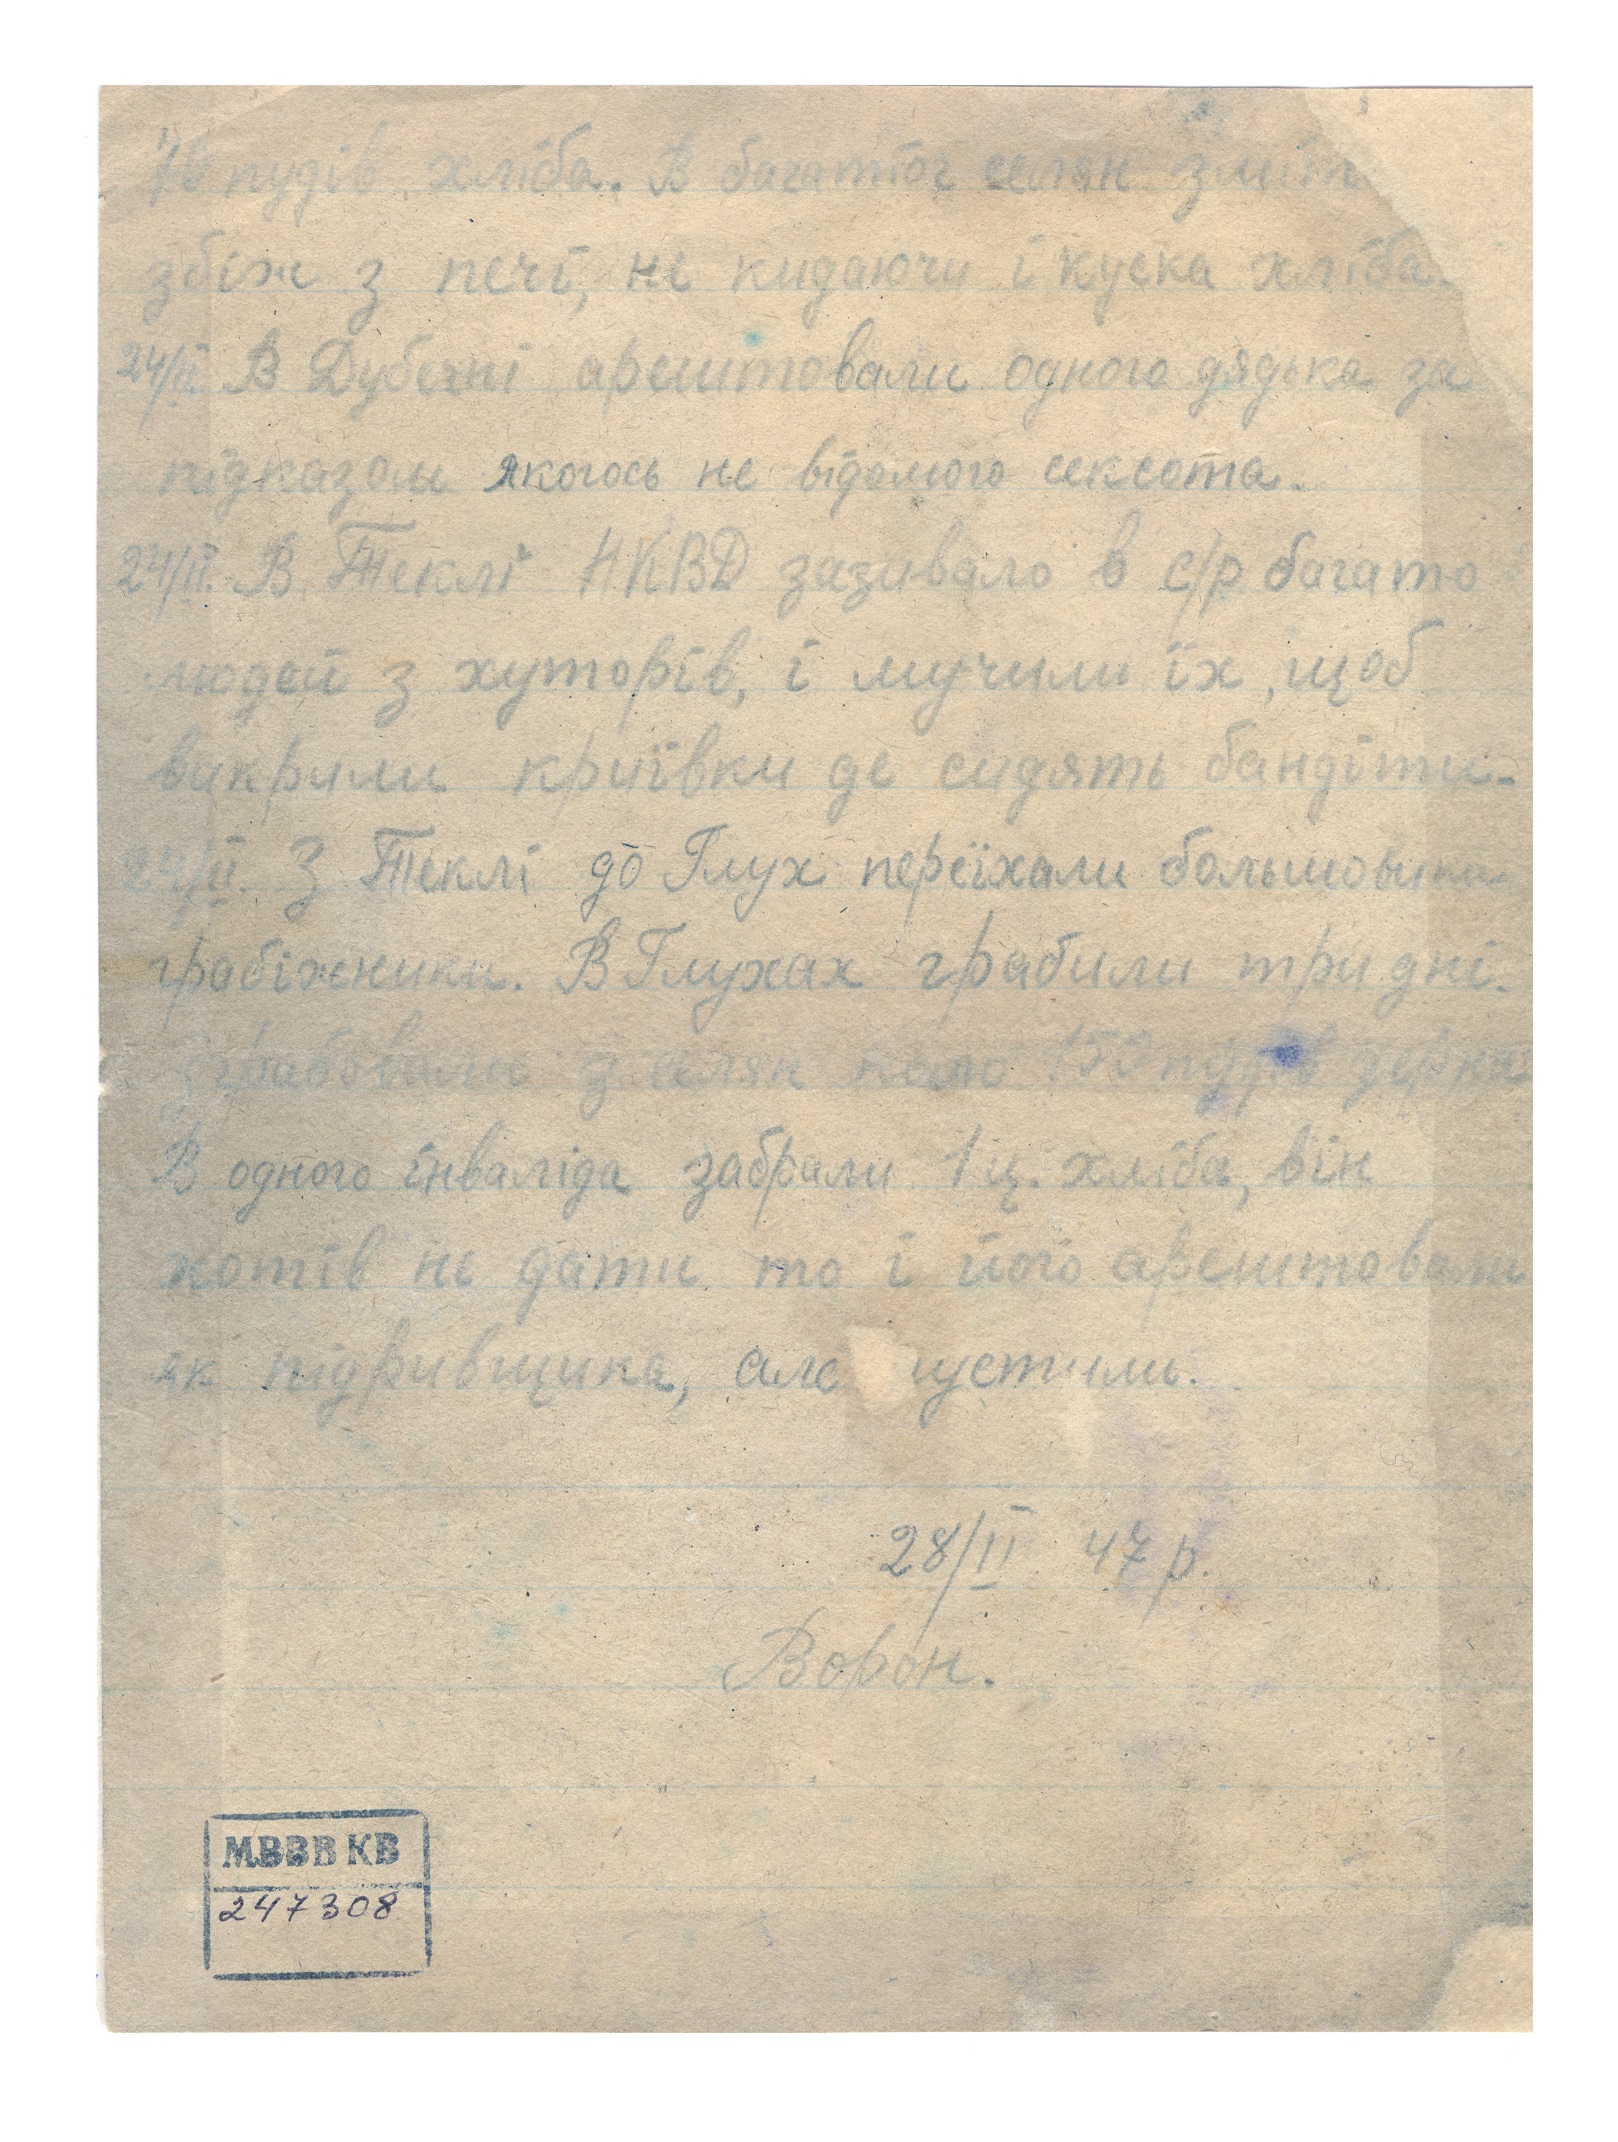 70 пудів хліба. В багатьох селян
збіж з печі, не кидаючи і куска хліба.
24/II В Дубечні арештовали одного дядька за
підказом якогось не відомого сексота.
24/II. В Теклі НКВД зазивало в с/р багато
людей з хуторів, і мучили їх, щоб
викрили криївки де сидять бандіти.
24/II. З Теклі до Глух переїхали большовики
грабіжники. В Глухах грабили три дні.
Зграбовали з селян коло 150 пудів зерна
В одного інваліда забрали 1 ц. хліба, він
хотів не дати то і його арештовали
як підривщика, але пустили.
28/II 47 р.
Ворон.
МВВВ КВ
247308